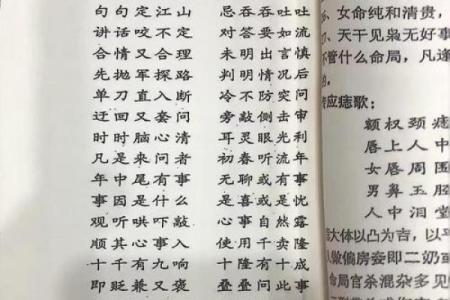 句句定江山
讲话咬不定
合情又合理
先抛军探路
单刀直入断
迂回又套问
时时脑心清
凡是来问者
年中尾有事
事因是什么
观听哄吓敲
顺其千隆入
十千有九响
即贬兼又褒
忌吞吞吐吐
对答要如流
未明言慎
判明情况后
冷不防突问
旁敲侧击审
耳灵眼光利
初春听流年
无聊或有事
是喜或是忧
心事自然露
使用千隆
十隆有十成
叠叠问此事
6、女命纯和清贵,
7、天干见枭无好事
不管什么命局,凡逢
的,
应痣歌:
额权颈痣
唇上人中
女唇周围
男鼻玉腔
人中泪堂
大体以凸为吉,以平
人做偏房妾即二奶
命局官杀混杂多见